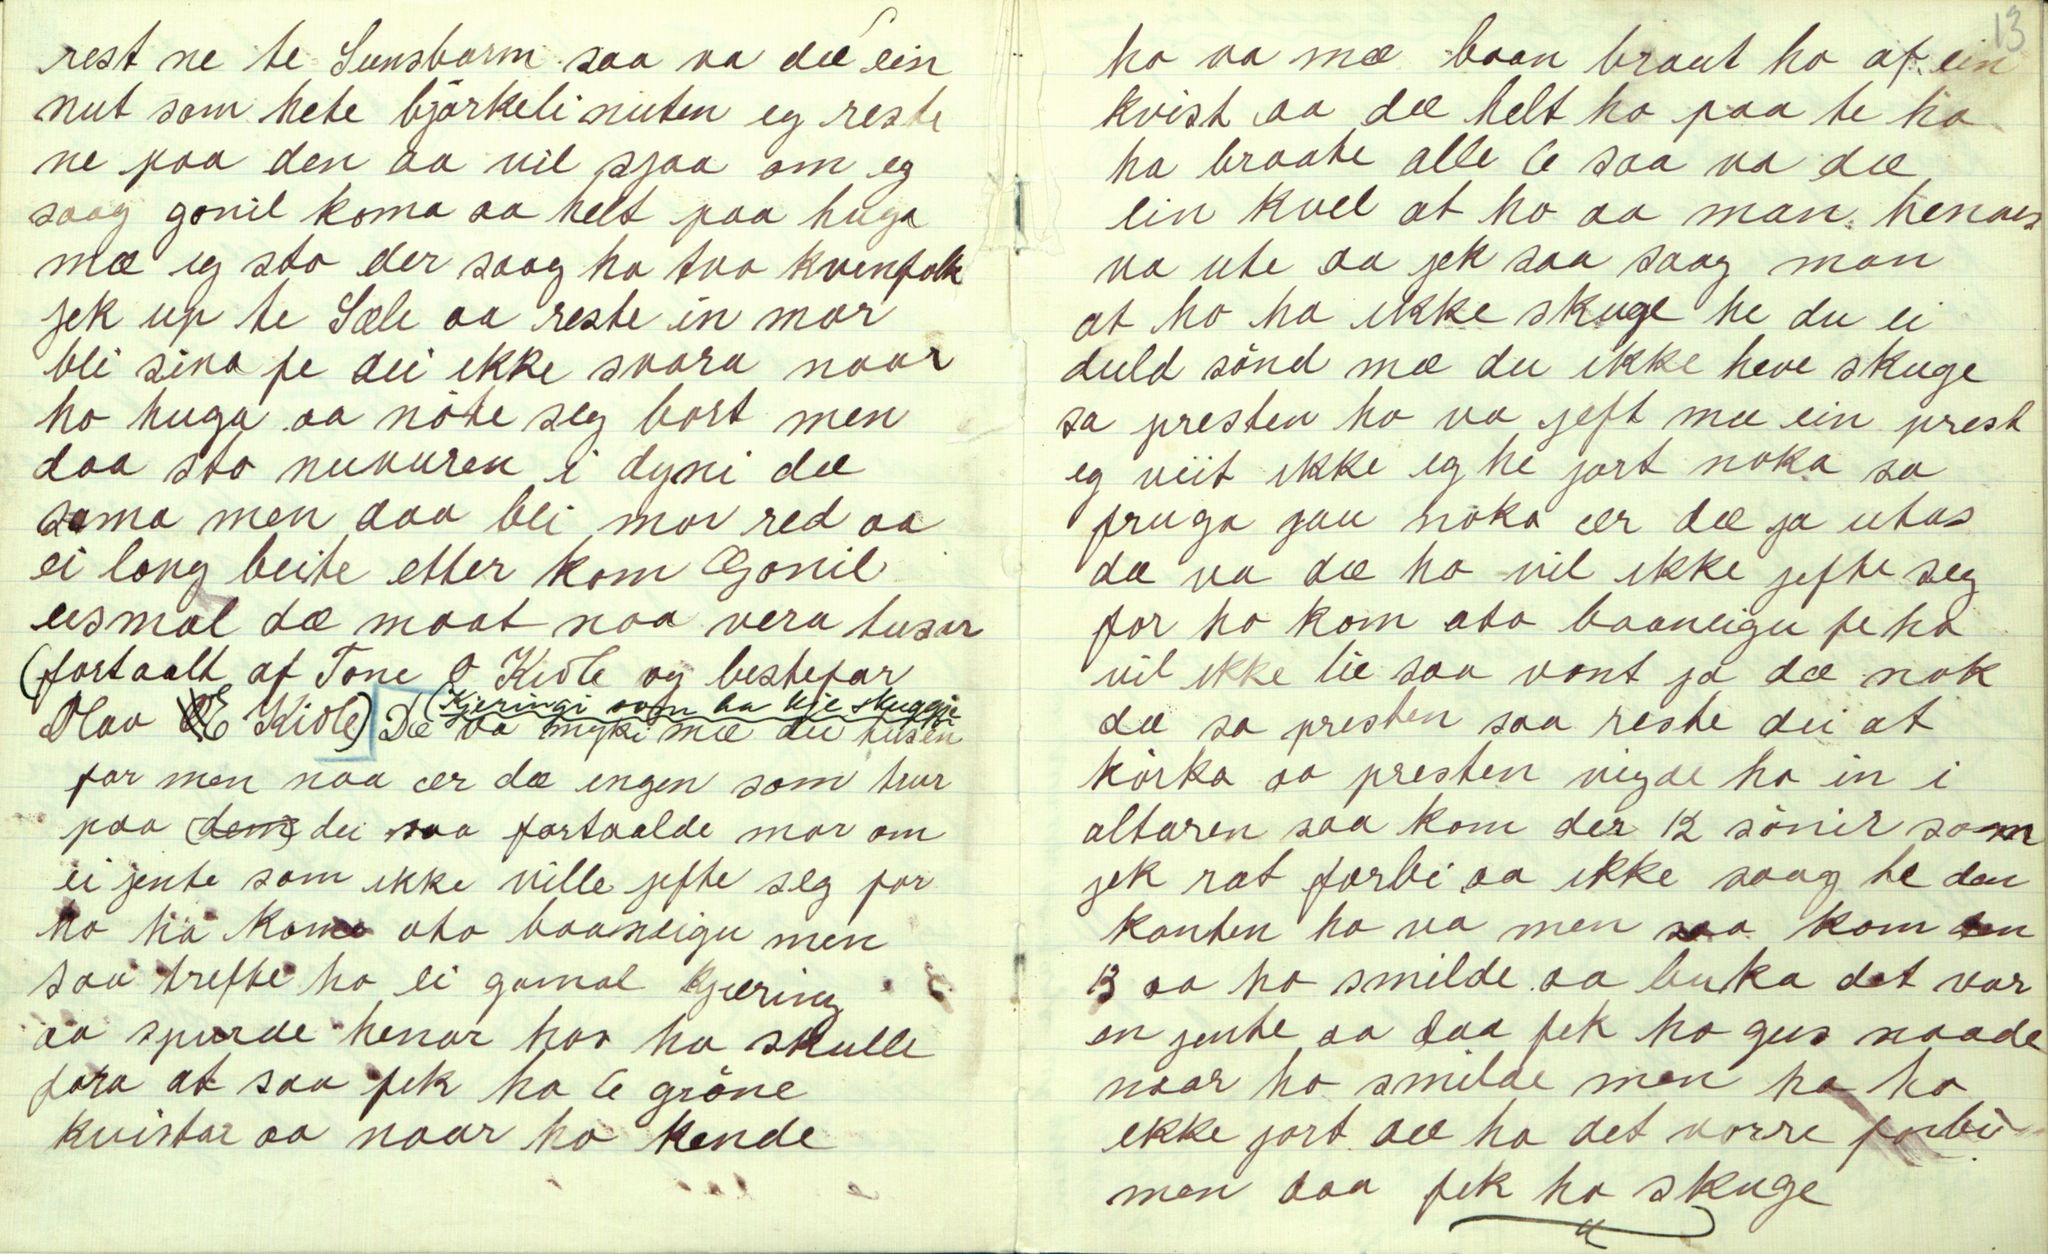 rest ne te Sunsbarm saa va dæ ein
nut som hete björkeli nuten eg reste
ne paa den aa vil sjaa om eg
saag gonil koma aa helt paa huga
mæ eg sto der saag ho tvo kvenfolk
jek up te Sæle aa reste in mor
bli sina fe dei ikke svara naar
ho huga aa nöte seg bort men
daa sto nuvuren i dyni dæ
sama men daa bli mor red aa
ei lang beite etter kom Gonil
eismal dæ maat naa vera tusar
(fortaalt af Tone O Kivle og bestefar
Olav E Kivle)
(Kjeringi som ha kje skuggje
Dæ va myki mæ dei tusen
for men naa ær dæ ingen som trur
paa (dem) dei saa fortaalde mor om
ei jente som ikke ville jefte seg for
ho ha koma ato baaneigu men
saa trefte ho ei gamal kjæring
aa spurde henar hos ho skulle
fara at saa fek ho 6 gröne
kvistar aa naar ho kende
13
ho va mæ baan braut ho af ein
kvist aa dæ helt ho paa te ho
ha braate alle 6 saa va dæ
ein kvel at ho aa man henars
va ute aa jek saa saag man
at ho ha ikke skuge he du ei
duld sönd mæ du ikke heve skuge
sa presten ho va jeft mæ ein prest
eg veit ikke eg he jort noka sa
fruga jau noka ær dæ ja utas
dæ va dæ ho vil ikke jefte seg
for ho kom ato baaneigu fe ho
vil ikke lie saa vont ja dæ nok
dæ sa presten saa reste dei at
körka aa presten vigde ho in i
altaren saa kom der 12 sönir som
jek rat forbi aa ikke saag te den
kanten ho va men saa kom den
13 aa ho smilde aa buka det var
en jente aa daa fek ho gus naade
naar ho smilde men ha ho
ikke jort dæ ha det vorre forbi
men daa fek ho skuge